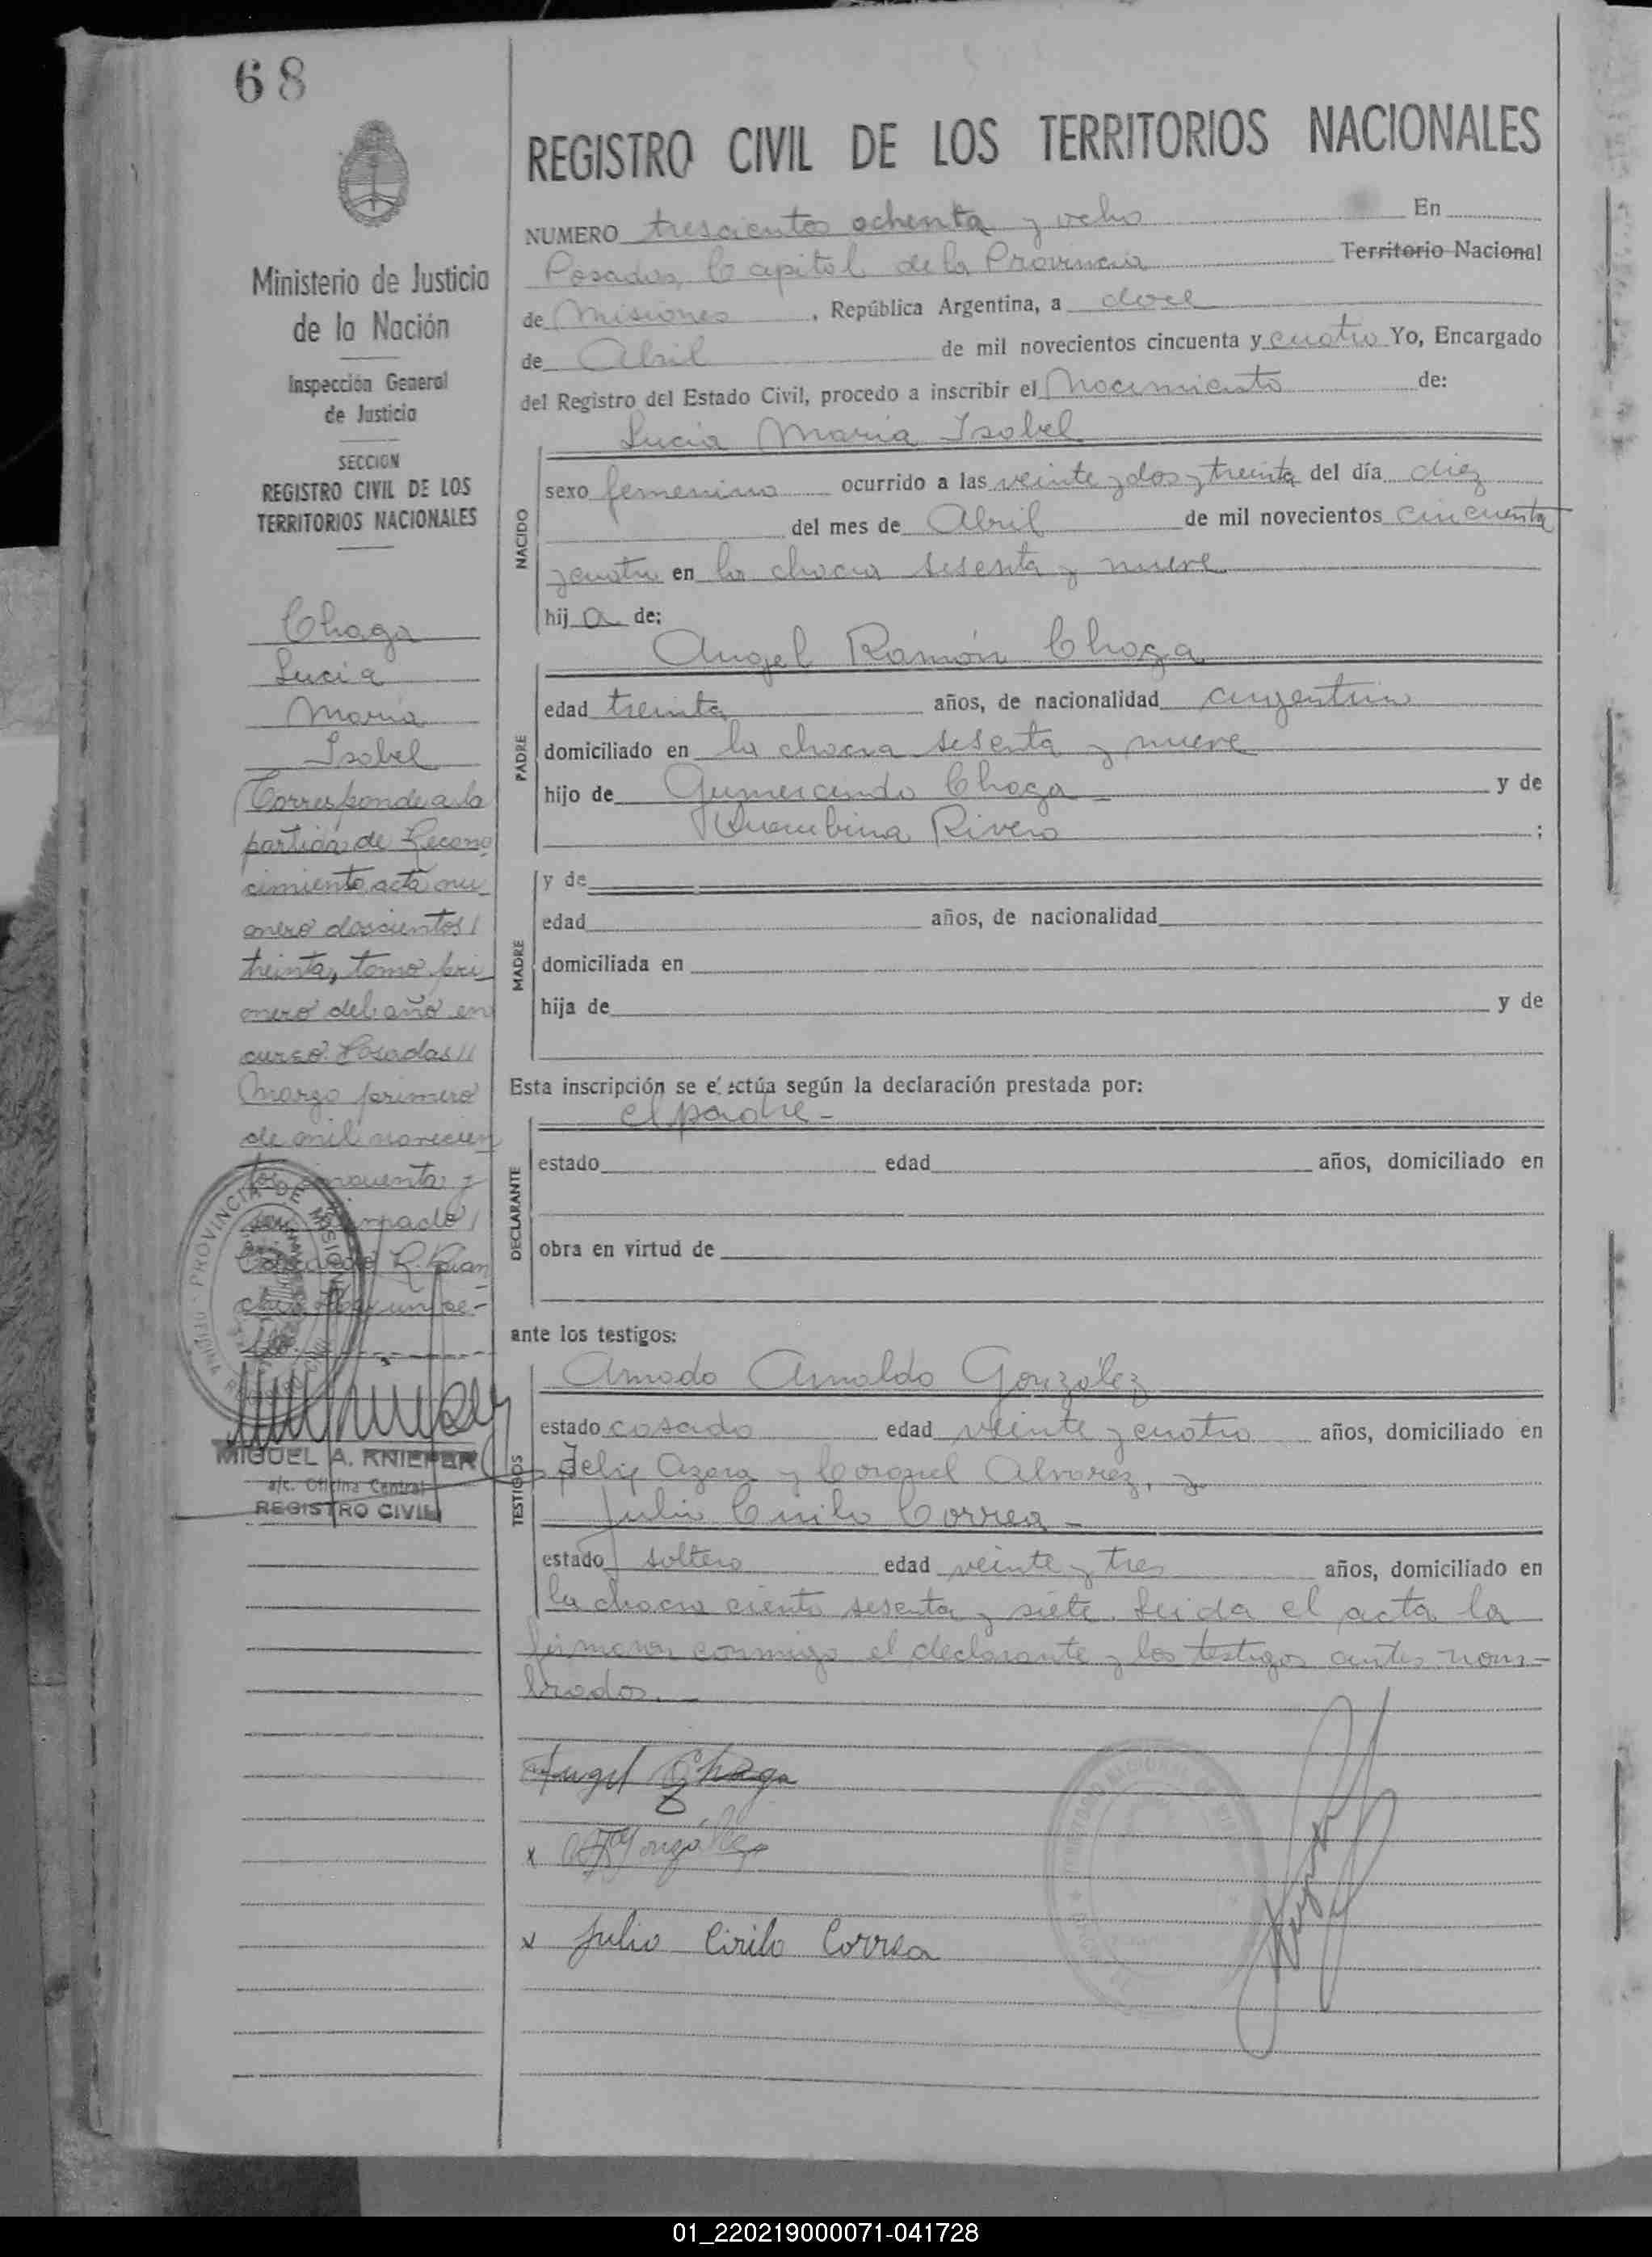 68
REGISTRO CIVIL DE LOS TERRITORIOS NACIONALES
Ministerio de Justicia
de la Nación
Inspección General
de Justicia
SECCION
REGISTRO CIVIL DE LOS
TERRITORIOS NACIONALES
Chaga
Lucia
Maria
Isabel
Corresponde a la
partida de Recono
cimiento acta nu
mero doscientos
treinta, tomo pri
mero del año en
curso. Posadas
Marzo primero
de mil novecien
tos cincuenta y
MIGUEL A. KNIEPER
a/c. Oficina Central
REGISTRO CIVIL
NUMERO trescientos ochenta y ocho En
Posadas, Capital de la Provincia Territorio Nacional
de Misiones, República Argentina, a doce
de Abril de mil novecientos cincuenta y cuatro Yo, Encargado
del Registro del Estado Civil, procedo a inscribir el Nacimiento de:
Lucia Maria Isabel
NACIDO
sexo femenino ocurrido a las veinte y dos y treinta del día diez
del mes de Abril de mil novecientos cincuenta
y cuatro en la chacra sesenta y nueve
hija de:
Angel Ramón Chaga
PADRE
edad treinta años, de nacionalidad argentino
domiciliado en la chacra sesenta y nueve
hijo de Gumercindo Chaga y de
Rivero ;
MADRE
y de
edad años, de nacionalidad
domiciliada en
hija de y de
Esta inscripción se efectúa según la declaración prestada por:
el padre -
DECLARANTE
estado edad años, domiciliado en
obra en virtud de
ante los testigos:
Amado Arnaldo González
TESTIGOS
estado casado edad veinte y cuatro años, domiciliado en
Felix Azara y Coronel Alvarez, y
Julio Cirilo Correa -
estado soltero edad veinte y tres años, domiciliado en
la chacra ciento sesenta y siete. Leida el acta la
firmaron conmigo el declarante y los testigos antes nom-
brados. -
Angel Chaga
x González
x Julio Cirilo Correa
01_220219000071-041728